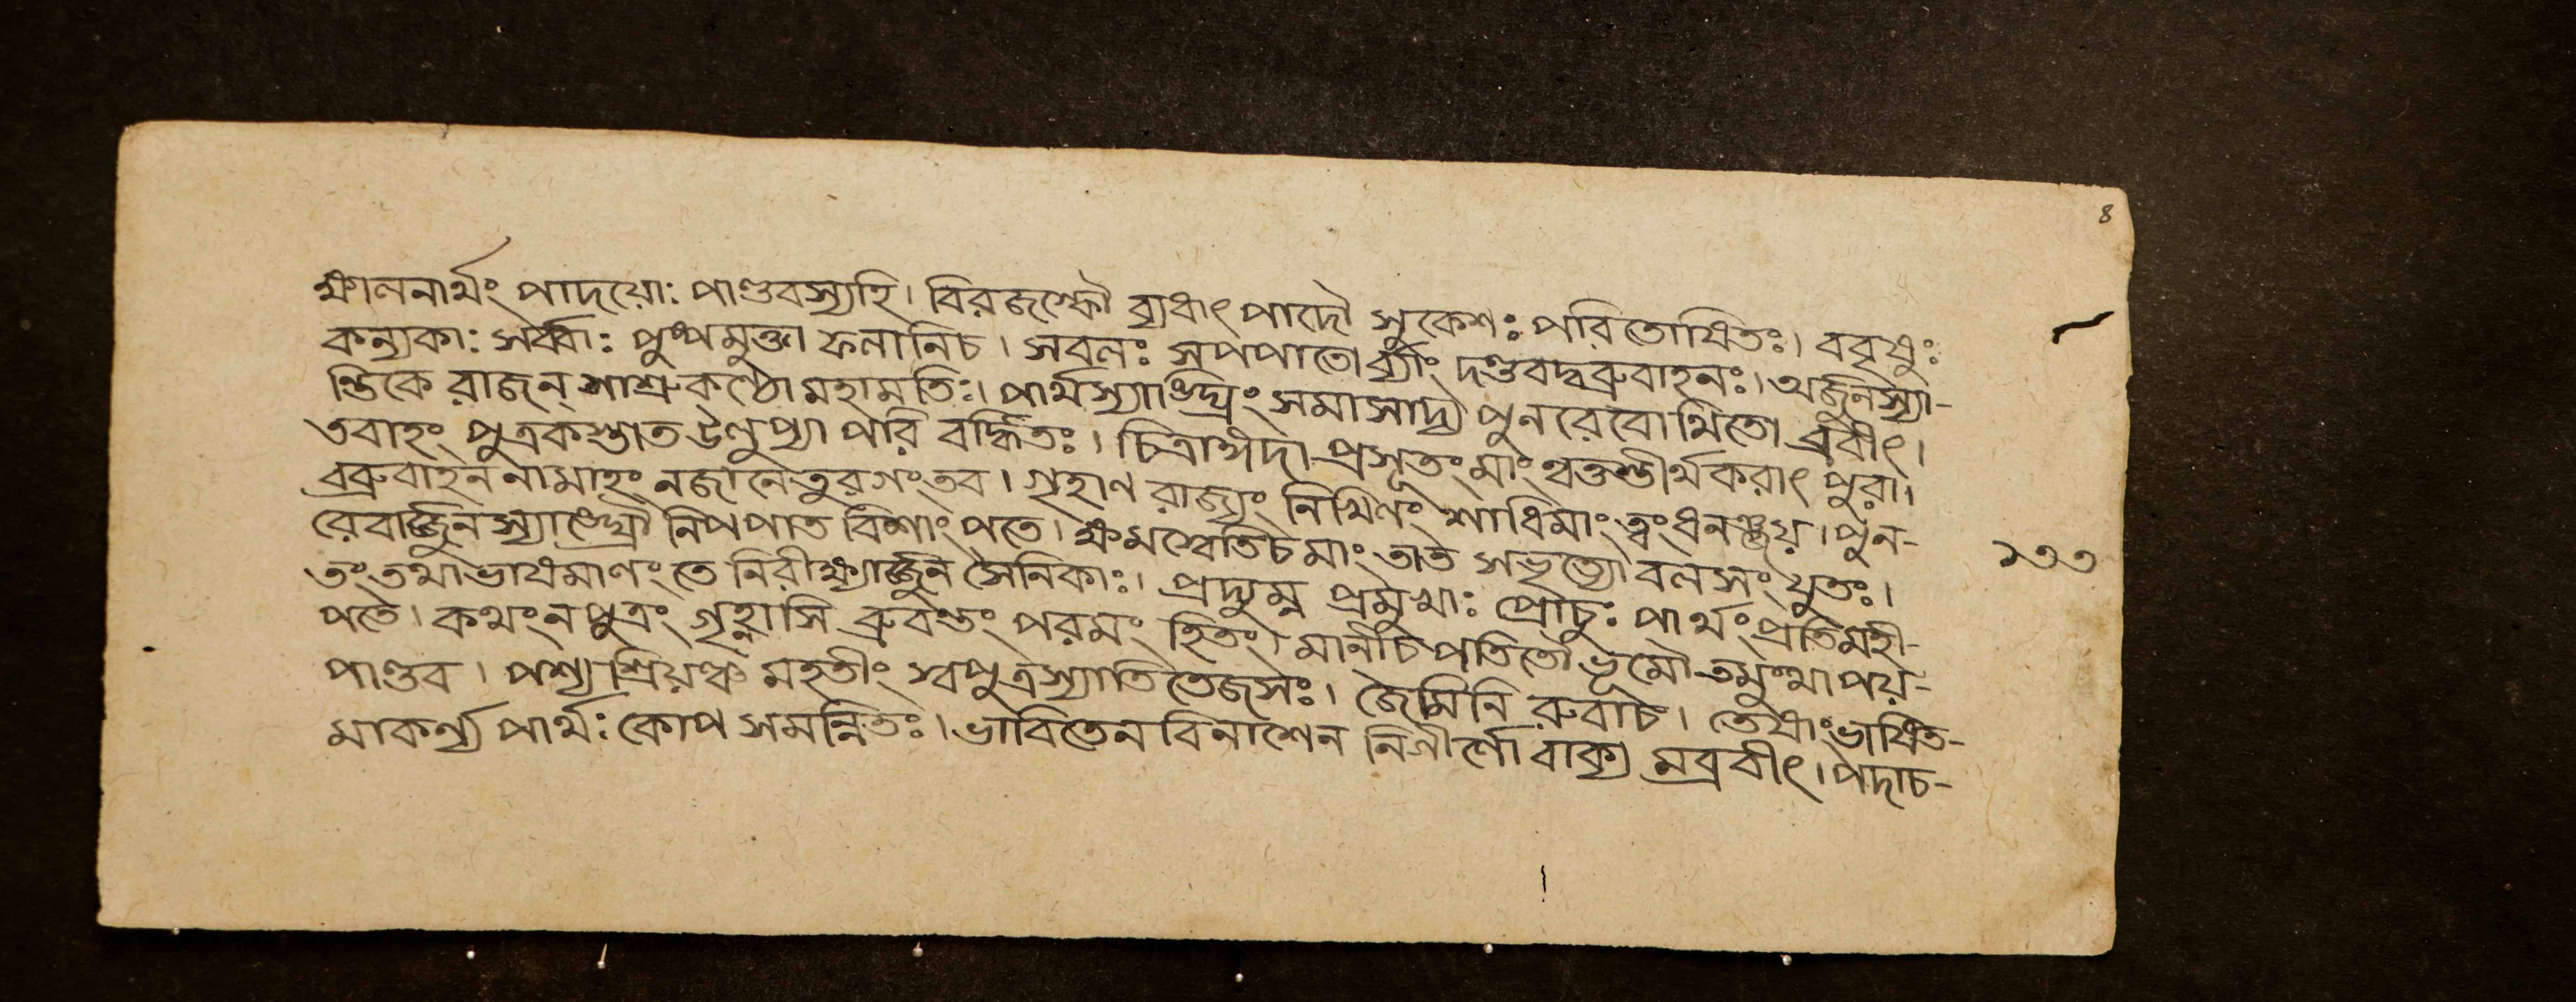 8
ক্ষালনার্থং পাদয়োঃ পাণ্ডবস্যহি। বিরজস্কৌ ব্যধাৎ পাদৌ সুকেশঃ পরিতোষিতঃ। ববৃষুঃ
কন্যকাঃ সর্ব্বাঃ পুষ্পমুক্তা ফলানিচ। সবলঃ সপপাতোর্ব্যাং দণ্ডবদ্বব্রুবাহনঃ। অর্জ্জুনস্যা-
ন্তিকে রাজন্ সাশ্রুকণ্ঠো মহামতিঃ। পার্থস্যাঙ্ঘ্রিং সমাসাদ্য পুনরেবোত্থিতো ব্রবীৎ।
তবাহং পুত্রকস্তাত উলুপ্যা পরিবর্দ্ধিতঃ। চিত্রাঙ্গদা প্রসূতং মাং ত্বক্তস্তীর্থকরাৎ পুরা।
বব্রুবাহননামাহং নজানে তুরগং তব। গৃহাণ রাজ্যং নিখিলং শাধিমাং ত্বং ধনঞ্জয়। পুন-
রেবার্জ্জুনস্যাঙ্ঘ্রৌ নিপপাত বিশাং পতে। ক্ষমস্বেতিচ মাং তাত সভৃত্যো বলসংযুতঃ।
১৩৩
তং তথা ভাষমাণং তে নিরীক্ষ্যার্জ্জুন সৈনিকাঃ। প্রদ্যুম্ন প্রমুখাঃ প্রোচুঃ পার্থং প্রতি মহী-
পতে। কথং ন পুত্রং গৃহ্ণাসি ব্রুবন্তং পরমং হিতং। মানাচ্চ পতিতো ভূমৌ তমুত্থাপয়-
পাণ্ডব। পশ্য শ্রিয়ঞ্চ মহতীং স্বপুত্রস্যাতিতেজসঃ। জৈমিনি রুবাচ। তেষাং ভাষিত-
মাকর্ণ্য পার্থঃ কোপ সমন্বিতঃ। ভাবিতেন বিনাশেন নিগীর্ণো বাক্য মব্রবীৎ। পদাচ-